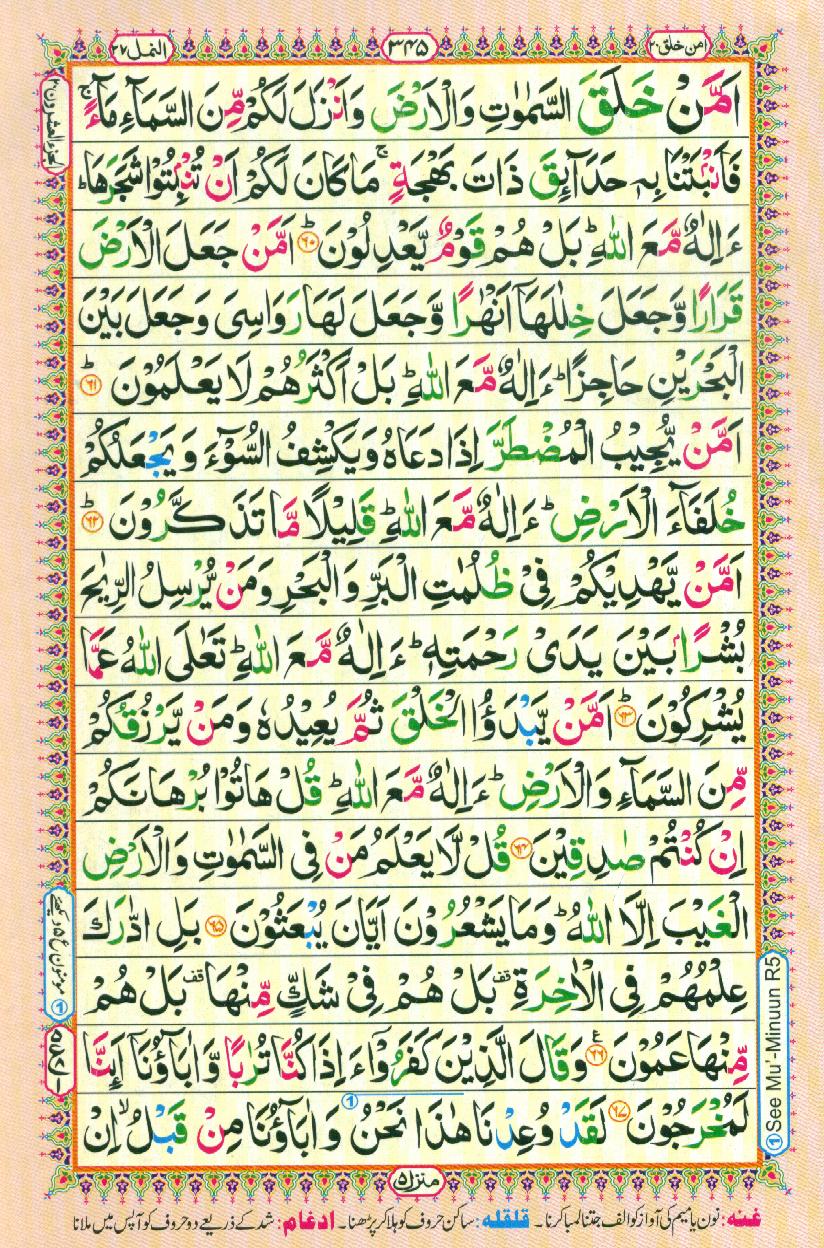 امن خلق ۲۰
۳۴۵
النمل ۲۷
اَمَّنْ خَلَقَ السَّمٰوٰتِ وَالْاَرْضَ وَاَنْزَلَ لَكُمْ مِّنَ السَّمَآءِ مَآءً ۚ
فَاَنْۢبَتْنَا بِهٖ حَدَآئِقَ ذَاتَ بَهْجَةٍ ۚ مَا كَانَ لَكُمْ اَنْ تُنْۢبِتُوْا شَجَرَهَا ؕ
ءَاِلٰهٌ مَّعَ اللّٰهِ ؕ بَلْ هُمْ قَوْمٌ يَّعْدِلُوْنَ ؕ ﴿۶۰﴾ اَمَّنْ جَعَلَ الْاَرْضَ
قَرَارًا وَّجَعَلَ خِلٰلَهَاۤ اَنْهٰرًا وَّجَعَلَ لَهَا رَوَاسِيَ وَجَعَلَ بَيْنَ
الْبَحْرَيْنِ حَاجِزًا ؕ ءَاِلٰهٌ مَّعَ اللّٰهِ ؕ بَلْ اَكْثَرُهُمْ لَا يَعْلَمُوْنَ ؕ ﴿۶۱﴾
اَمَّنْ يُّجِيْبُ الْمُضْطَرَّ اِذَا دَعَاهُ وَيَكْشِفُ السُّوْٓءَ وَيَجْعَلُكُمْ
خُلَفَآءَ الْاَرْضِ ؕ ءَاِلٰهٌ مَّعَ اللّٰهِ ؕ قَلِيْلًا مَّا تَذَكَّرُوْنَ ؕ ﴿۶۲﴾
اَمَّنْ يَّهْدِيْكُمْ فِيْ ظُلُمٰتِ الْبَرِّ وَالْبَحْرِ وَمَنْ يُّرْسِلُ الرِّيٰحَ
بُشْرًۢا بَيْنَ يَدَيْ رَحْمَتِهٖ ؕ ءَاِلٰهٌ مَّعَ اللّٰهِ ؕ تَعٰلَى اللّٰهُ عَمَّا
يُشْرِكُوْنَ ؕ ﴿۶۳﴾ اَمَّنْ يَّبْدَؤُا الْخَلْقَ ثُمَّ يُعِيْدُهٗ وَمَنْ يَّرْزُقُكُمْ
مِّنَ السَّمَآءِ وَالْاَرْضِ ؕ ءَاِلٰهٌ مَّعَ اللّٰهِ ؕ قُلْ هَاتُوْا بُرْهَانَكُمْ
اِنْ كُنْتُمْ صٰدِقِيْنَ ﴿۶۴﴾ قُلْ لَّا يَعْلَمُ مَنْ فِي السَّمٰوٰتِ وَالْاَرْضِ
الْغَيْبَ اِلَّا اللّٰهُ ؕ وَمَا يَشْعُرُوْنَ اَيَّانَ يُبْعَثُوْنَ ﴿۶۵﴾ بَلِ ادّٰرَكَ
عِلْمُهُمْ فِي الْاٰخِرَةِ ۫ بَلْ هُمْ فِيْ شَكٍّ مِّنْهَا ۫ بَلْ هُمْ
مِّنْهَا عَمُوْنَ ﴿۶۶﴾ وَقَالَ الَّذِيْنَ كَفَرُوْۤا ءَاِذَا كُنَّا تُرٰبًا وَّاٰبَآؤُنَاۤ اَئِنَّا
لَمُخْرَجُوْنَ ﴿۶۷﴾ لَقَدْ وُعِدْنَا هٰذَا نَحْنُ وَاٰبَآؤُنَا مِنْ قَبْلُ ۙ اِنْ
①
منزل ۵
الجزء العشرون ۲۰
①See Mu'-Minuun R5
غنه: نون یا میم کی آواز کو الف جتنا لمبا کرنا۔ قلقله: ساکن حروف کو ہلا کر پڑھنا۔ ادغام: شد کے ذریعے دو حروف کو آپس میں ملانا